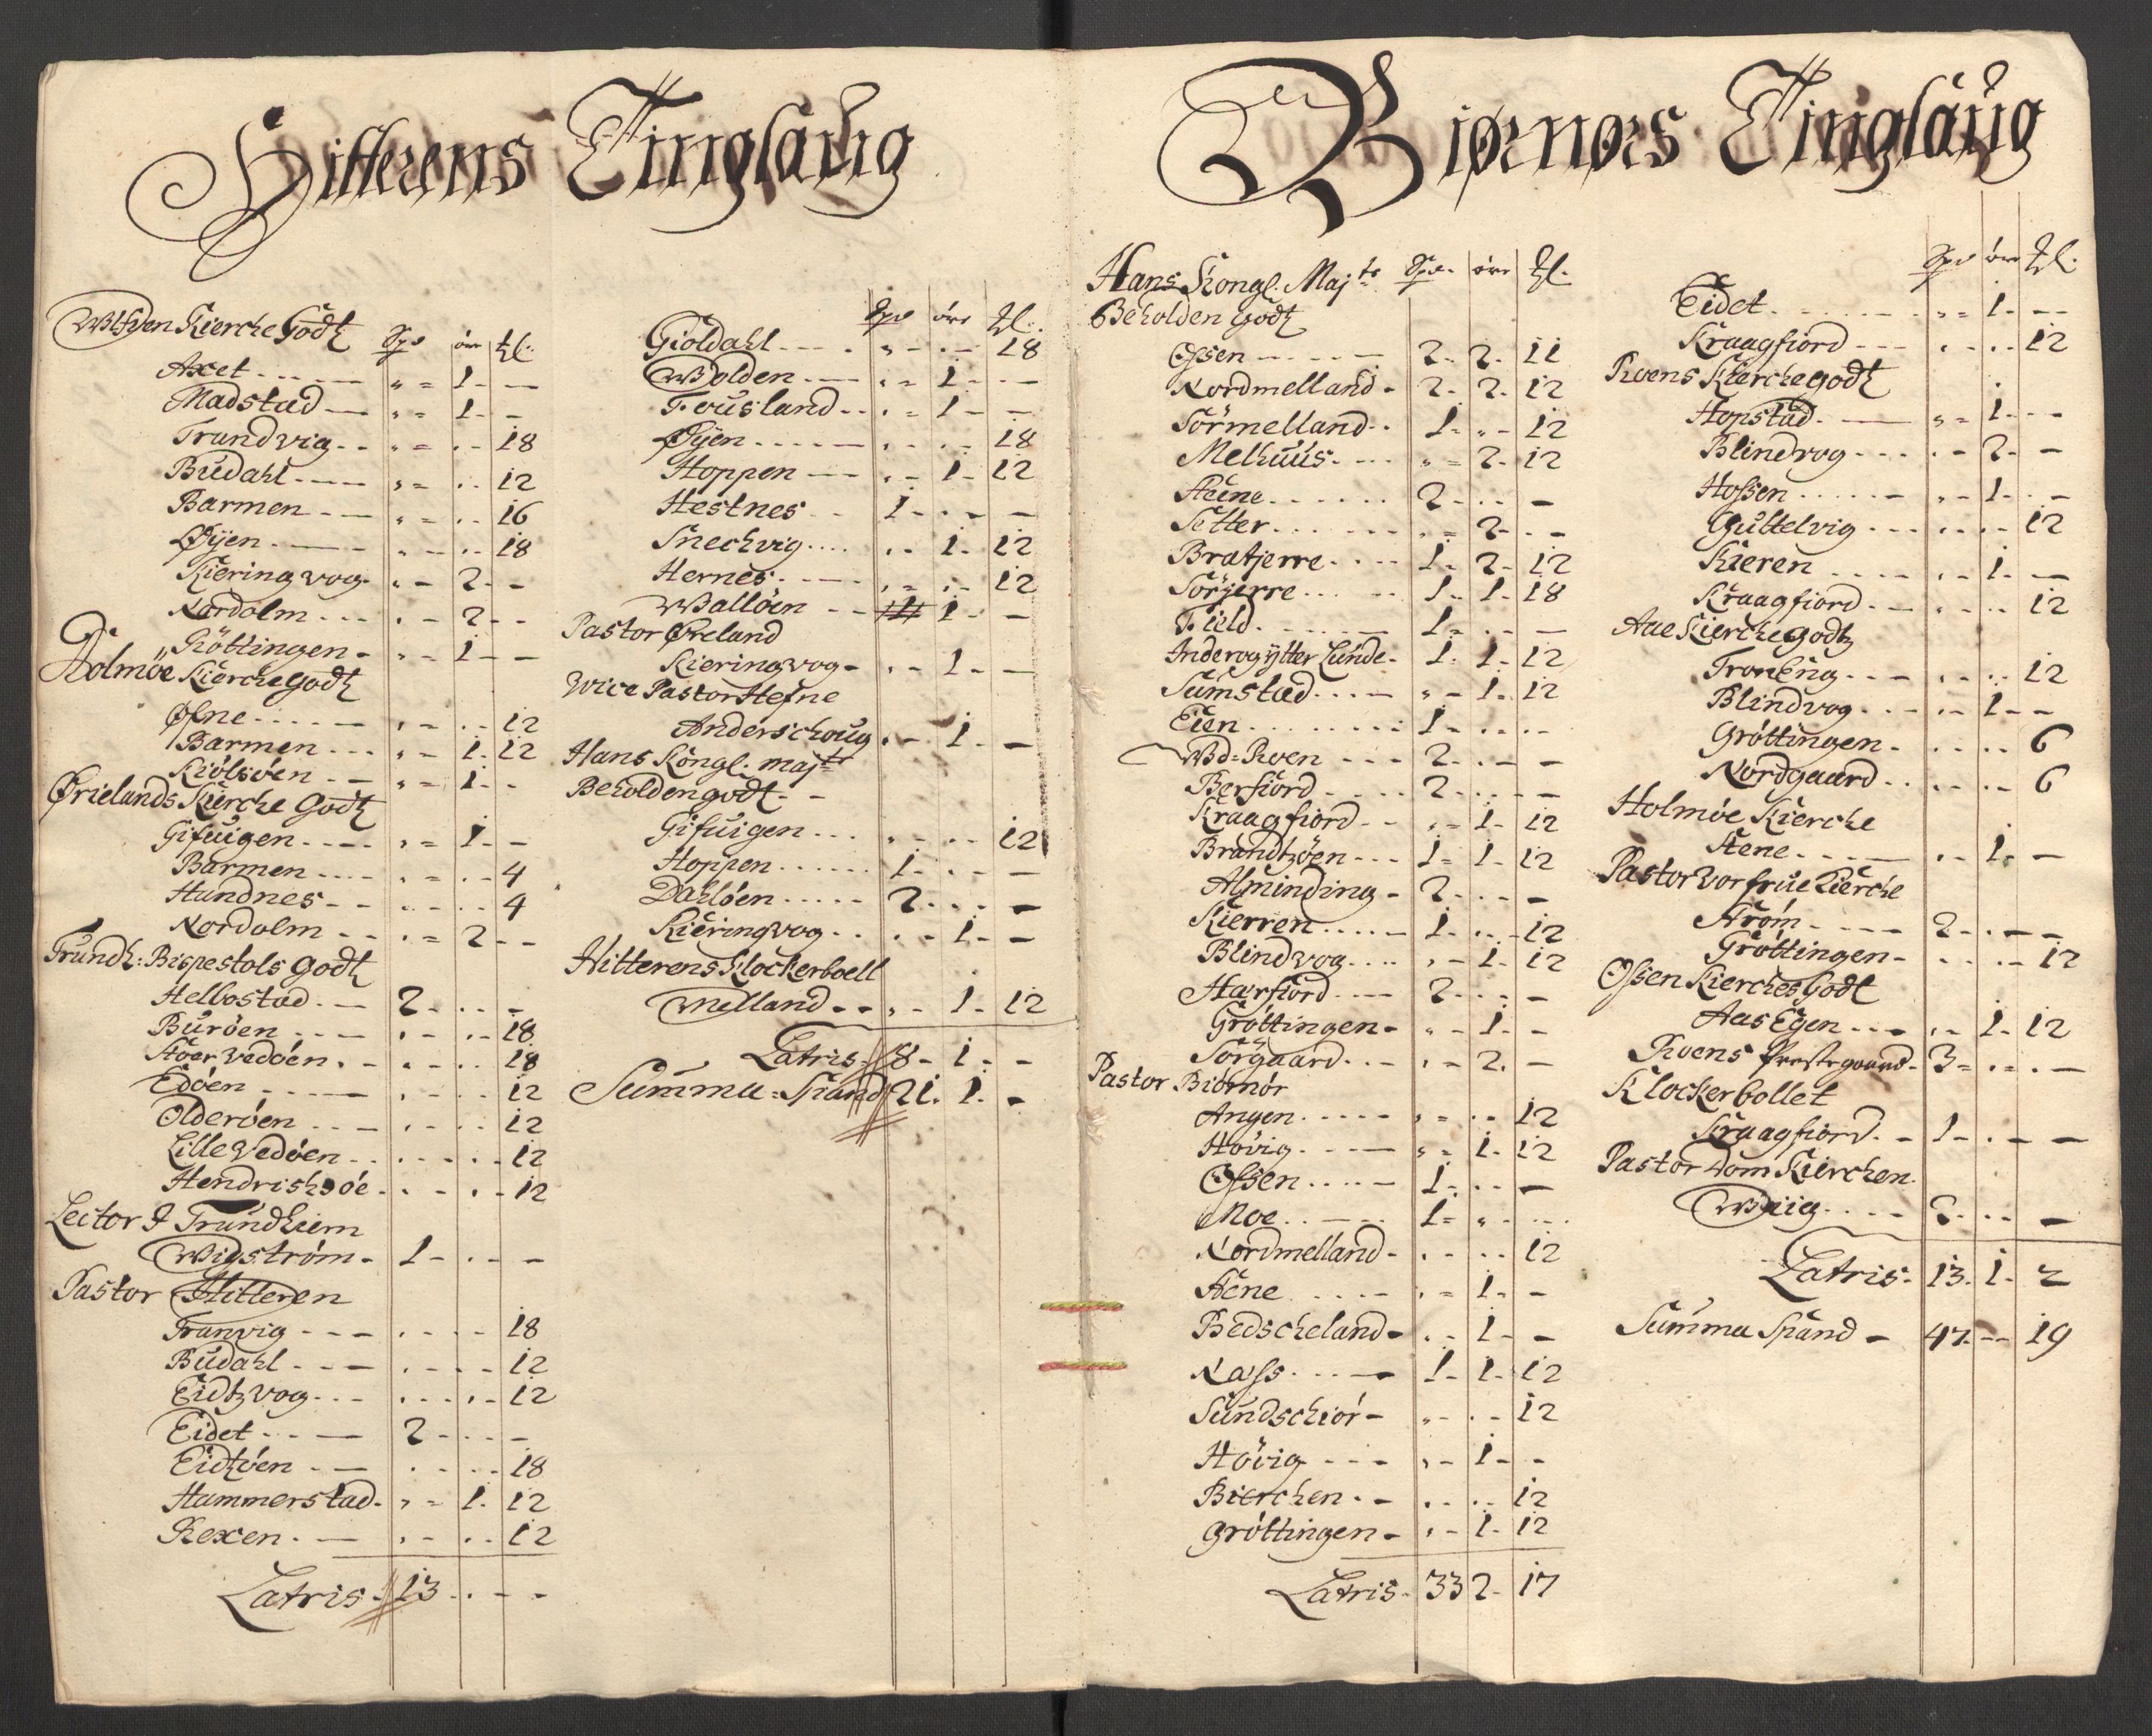 Hitterens Tinglaug
Wlfden Kierche Godtz Spd ör ℳl.
Axet - - 1 - -
Madstad - - 1 - -
Trandvig - - - 18
Budahl - - - 12
Barmen - - - 16
Øyen - - - 18
Kieringvog - - 2 - -
Nordolm - - 2 - -
Röttingen - - 1 - -
Holmöe Kierche godtz
Øfne - - - 12
Barmen - - 1 - 12
Kiölsöen - - 1 - -
Ørielands Kierche Godtz
Gifuigen - - 1 - -
Barmen - - - 4
Hundnes - - - 4
Nordolm - - 2 - -
Trundh: Bispestols Godtz
Helbostad - 2 - - -
Buröen - - - 18
Stoer Vedöen - - - 18
Edöen - - - 12
Olderöen - - - 12
Lille Vedöen - - - 12
Hendrichsöe - - - 12
Lector I Trundhiem
Widström - 1 - - -
Pastor Hitteren
Tranvig - - - 18
Budahl - - - 12
Eidtzvog - - - 12
Eidet - 2 - - -
Eidtzöen - - - 18
Hammerstad - - 1 - 12
Rexen - - - 12
Latris - 13 - - -
Spd ör
Gioldahl - - - 18
Wolden - - 1 - -
Fousland - - 1 - -
Øyen - - - 18
Hoppen - - 1 - 12
Hestnes - 1 - - -
Snechvig - - 1 - 12
Hernes - - - 12
Wallöen - - 1 - -
Pastor Øreland
Kieringvog - - 1 - -
Wice Pastor Hefne
Anderschoug - - 1 - -
Hans Kongl. majts
Beholden godtz
Gifuigen - - - 12
Hoppen - 1 - - -
Dahlöen - 2 - - -
Kieringvog - - 1 - -
Hitterens Klockerboell
Melland - - 1 - 12
Latris - 8 - 1 - -
Summa = Spand 21. 1. -
Biörnörs Tinglaug
Hans Kongl. Majts Spd. ör
Beholden godtz
Ossen - 2 - 2 - 11
Nordmelland - 2 - 2 - 12
Sörmelland - 1 - - 12
Melhuus - - 2 - 12
Steine - 2 - - -
Setter - - 2 - -
Bratjerre - 1 - 2 - 12
Sörjerre - 1 - 1 - 18
Field - 1 - - -
Inder og ytter Lunde - 1 - 1 - 12
Sumstad - - 1 - 12
Eien - 1 - - -
Wd = Roen - 2 - - -
Berfiord - 2 - - -
Kraagfiord - - 1 - 12
Brandtzöen - 1 - 1 - 12
Alminding - 2 - - -
Kierren - 1 - - 12
Blindvog - - 1 - 12
Harfiord - 2 - - -
Gröttingen - - 1 - -
Sörgaard - - 2 - -
Pastor Biörnör
Angen - - - 12
Hövig - - 1 - 12
Ossen - 1 - - -
Moe - 1 - - -
Nordmelland - - - 12
Stene - - 1 - -
Bedscheland - - 1 - -
Nass - 1 - 1 - 12
Sundschiör - - - 12
Hövig - - 1 - -
Bierchen - - - 12
Gröttingen - - 1 - 12
Latris - 33 2 - 17
Spd ör
Eidet - - 1 - -
Kraagfiord - - - 12
Roens Kierche godtz
Hopstad - - 1 - -
Blindvog - - 2 - -
Hossen - - 1 - -
Guttelvig - - - 12
Kieren - - 1 - -
Kraagfiord - - - 12
Aae Kierche godtz
Troneng - - - 12
Blindvog - - 1 - -
Gröttingen - - - 6
Nordgaard - - - 6
Holmöe Kierche
Stene - - 1 - -
Pastor Vor frue Kierche
Ström - 2 - - -
Gröttingen - - - 12
Ossen Kierches Godt
Aas Egen - - 1 - 12
Roens Prestegaard - 3 - - -
Klockerbollet
Kraagfiord - 1 - - -
Pastor Dom Kierchen
Wiig - 2 - - -
Latris - 13. 1. 2
Summa Spand - 47 - - 19